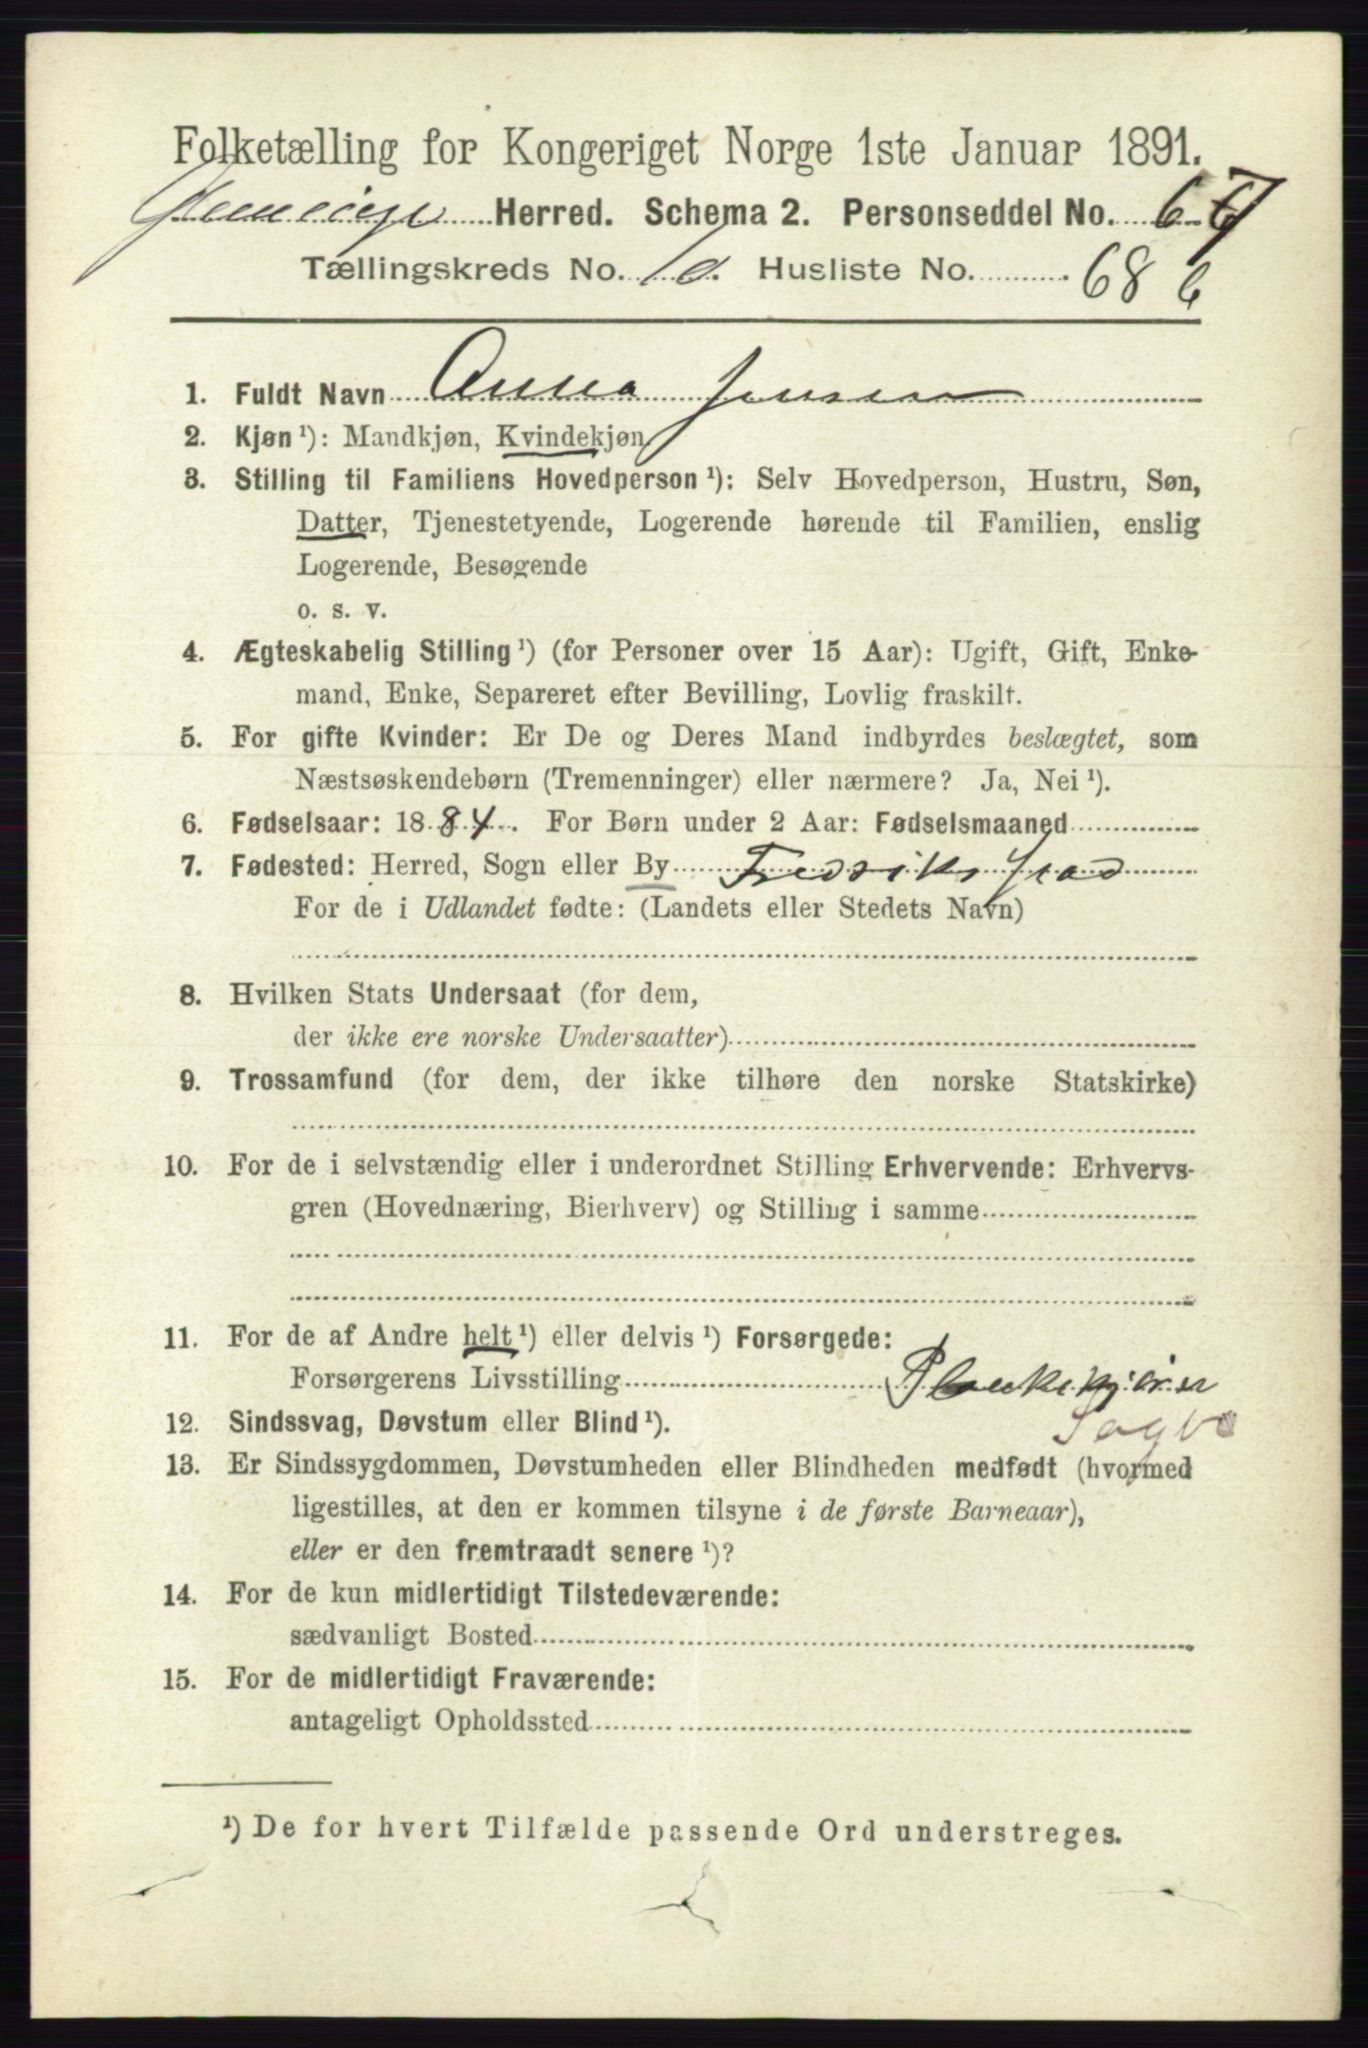 Folketælling for Kongeriget Norge 1ste Januar 1891.
Glemminge Herred. Schema 2. Personseddel No. 667
Tællingskreds No. 10. Husliste No. 68 6
1. Fuldt Navn Anna Jensen
2. Kjøn¹): Mandkjøn, Kvindekjøn
3. Stilling til Familiens Hovedperson¹): Selv Hovedperson, Hustru, Søn,
Datter, Tjenestetyende, Logerende hørende til Familien, enslig
Logerende, Besøgende
o. s. v.
4. Ægteskabelig Stilling¹) (for Personer over 15 Aar): Ugift, Gift, Enke-
mand, Enke, Separeret efter Bevilling, Lovlig fraskilt.
5. For gifte Kvinder: Er De og Deres Mand indbyrdes beslægtet, som
Næstsøskendebørn (Tremenninger) eller nærmere? Ja, Nei¹).
6. Fødselsaar: 1884. For Børn under 2 Aar: Fødselsmaaned
7. Fødested: Herred, Sogn eller By Fredrikstad
For de i Udlandet fødte: (Landets eller Stedets Navn)
8. Hvilken Stats Undersaat (for dem,
der ikke ere norske Undersaatter)
9. Trossamfund (for dem, der ikke tilhøre den norske Statskirke)
10. For de i selvstændig eller i underordnet Stilling Erhvervende: Erhvervs-
gren (Hovednæring, Bierhverv) og Stilling i samme
11. For de af Andre helt¹) eller delvis¹) Forsørgede:
Forsørgerens Livsstilling Plankekjører
Sagbr
12. Sindssvag, Døvstum eller Blind¹).
13. Er Sindssygdommen, Døvstumheden eller Blindheden medfødt (hvormed
ligestilles, at den er kommen tilsyne i de første Barneaar),
eller er den fremtraadt senere¹)?
14. For de kun midlertidigt Tilstedeværende:
sædvanligt Bosted
15. For de midlertidigt Fraværende:
antageligt Opholdssted
¹) De for hvert Tilfælde passende Ord understreges.